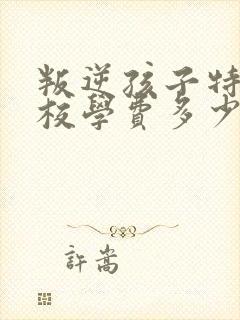 叛逆孩子特
校學費多少
許嵩